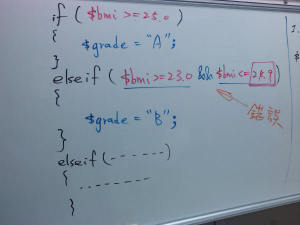 if ( $bmi >= 25.0 )
{
$grade = "A";
}
elseif ( $bmi >= 23.0 && $bmi <= 24.9 )
{
錯誤
$grade = "B";
}
elseif (------)
{ --------
}
1.
$